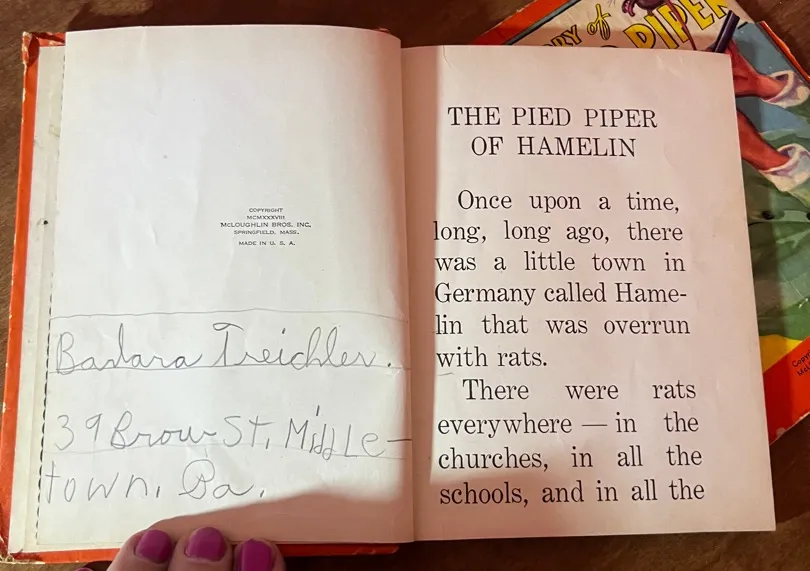 COPYRIGHT
MCMXXXVIII
McLOUGHLIN BROS., INC.
SPRINGFIELD, MASS.
MADE IN U. S. A.
Barbara Treichler.
39 Brown St, Middle-
town, Pa.
THE PIED PIPER
OF HAMELIN
Once upon a time,
long, long ago, there
was a little town in
Germany called Hame-
lin that was overrun
with rats.
There were rats
everywhere — in the
churches, in all the
schools, and in all the
OF
PIPER